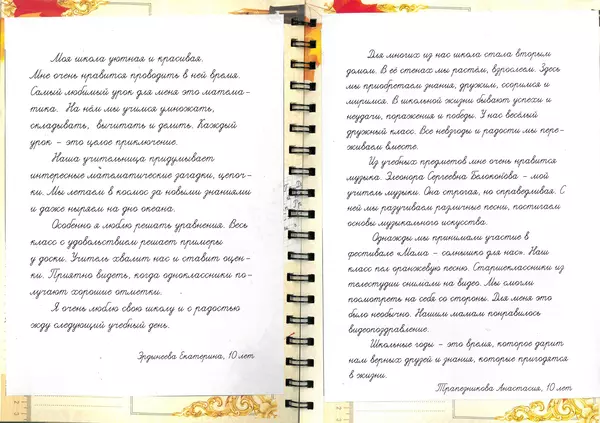 Моя школа уютная и красивая.
Мне очень нравится проводить в ней время.
Самый любимый урок для меня это матема-
тика. На нём мы учимся умножать,
складывать, вычитать и делить. Каждый
урок - это целое приключение.
Наша учительница придумывает
интересные математические загадки, цепоч-
ки. Мы летаем в космос за новыми знаниями
и даже ныряем на дно океана.
Особенно я люблю решать уравнения. Весь
класс с удовольствием решает примеры
у доски. Учитель хвалит нас и ставит оцен-
ки. Приятно видеть, когда одноклассники по-
лучают хорошие отметки.
Я очень люблю свою школу и с радостью
жду следующий учебный день.
Эрдинеева Екатерина, 10 лет
Для многих из нас школа стала вторым
домом. В её стенах мы растём, взрослеем. Здесь
мы приобретаем знания, дружим, ссоримся и
миримся. В школьной жизни бывают успехи и
неудачи, поражения и победы. У нас весёлый
дружный класс. Все невзгоды и радости мы пере-
живаем вместе.
Из учебных предметов мне очень нравится
музыка. Элеонора Сергеевна Белоконова - мой
учитель музыки. Она строгая, но справедливая. С
ней мы разучиваем различные песни, постигаем
основы музыкального искусства.
Однажды мы принимали участие в
фестивале «Мама - солнышко для нас». Наш
класс пел оранжевую песню. Старшеклассники из
телестудии снимали на видео. Мы смогли
посмотреть на себя со стороны. Для меня это
было необычно. Нашим мамам понравилось
видеопоздравление.
Школьные годы - это время, которое дарит
нам верных друзей и знания, которые пригодятся
в жизни.
Трапезникова Анастасия, 10 лет